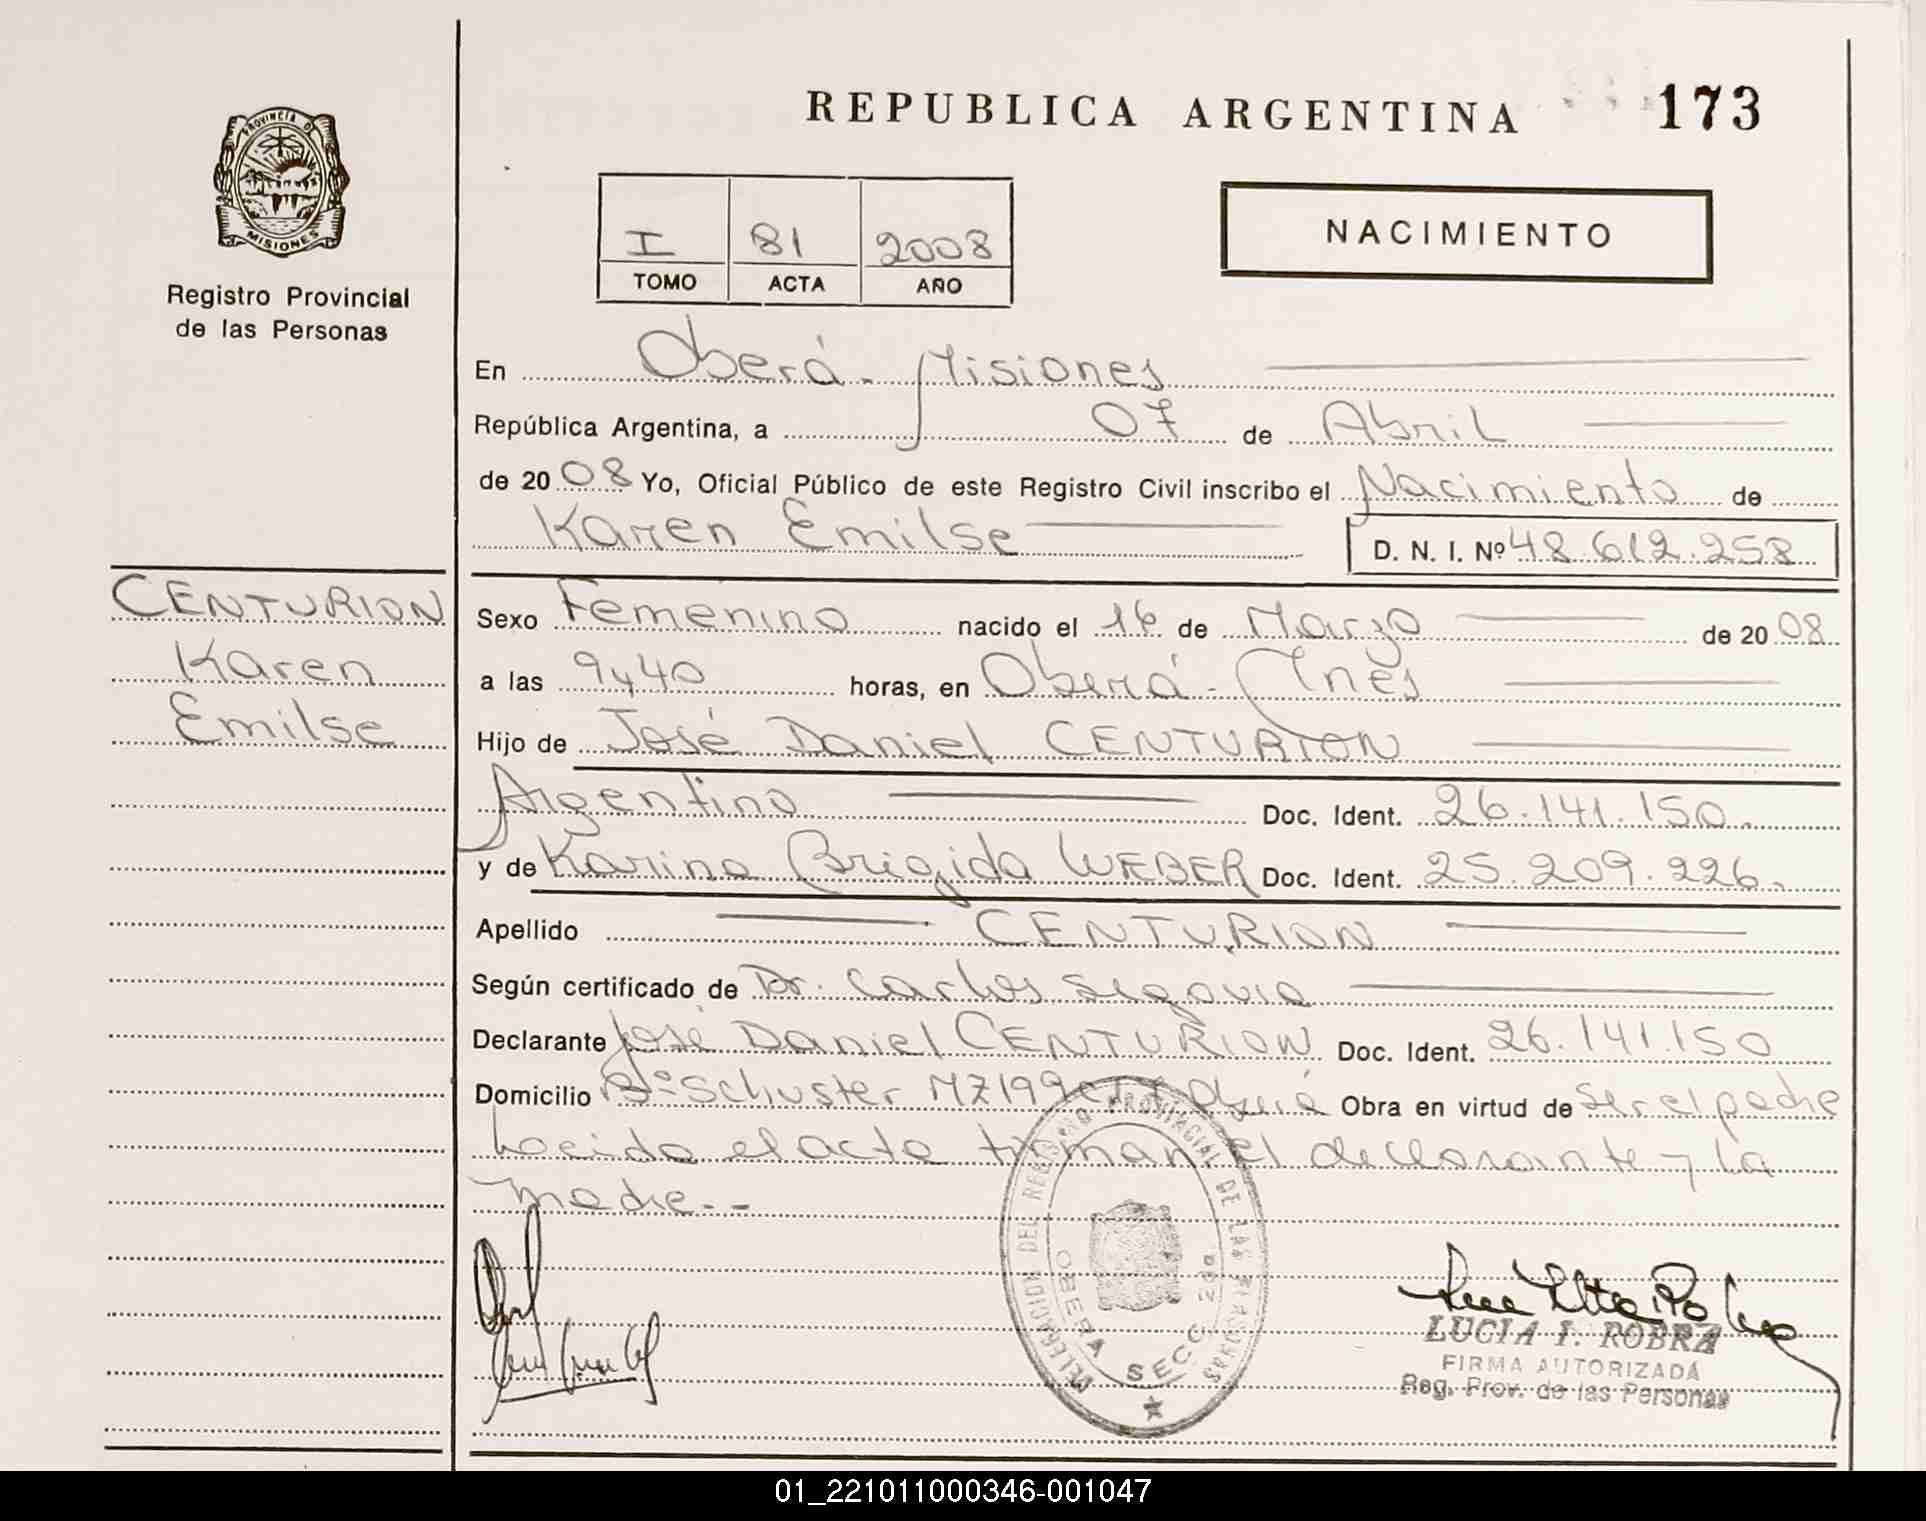 REPUBLICA ARGENTINA 173
PROVINCIA D
MISIONES
Registro Provincial
de las Personas
I 81 2008
TOMO ACTA AÑO
NACIMIENTO
En Oberá - Misiones
República Argentina, a 07 de Abril
de 2008 Yo, Oficial Público de este Registro Civil inscribo el Nacimiento de
Karen Emilse D. N. I. Nº 48.612.258
CENTURION
Karen
Emilse
Sexo Femenino nacido el 16 de Marzo de 2008
a las 9y40 horas, en Oberá - Mnes
Hijo de José Daniel CENTURION
Argentino Doc. Ident. 26.141.150.
y de Karina Brigida WEBER Doc. Ident. 25.209.226.
Apellido CENTURION
Según certificado de Dr. Carlos Segovia
Declarante José Daniel CENTURION Doc. Ident. 26.141.150
Domicilio Bº Schuster MZ199 Oberá Obra en virtud de ser el padre
Leida el acta firman el declarante y la
madre.--
DELEGACION DEL REGISTRO PROVINCIAL DE LAS PERSONAS
OBERA SECC. 2da
LUCIA I. ROBRA
FIRMA AUTORIZADA
Reg. Prov. de las Personas
01_221011000346-001047